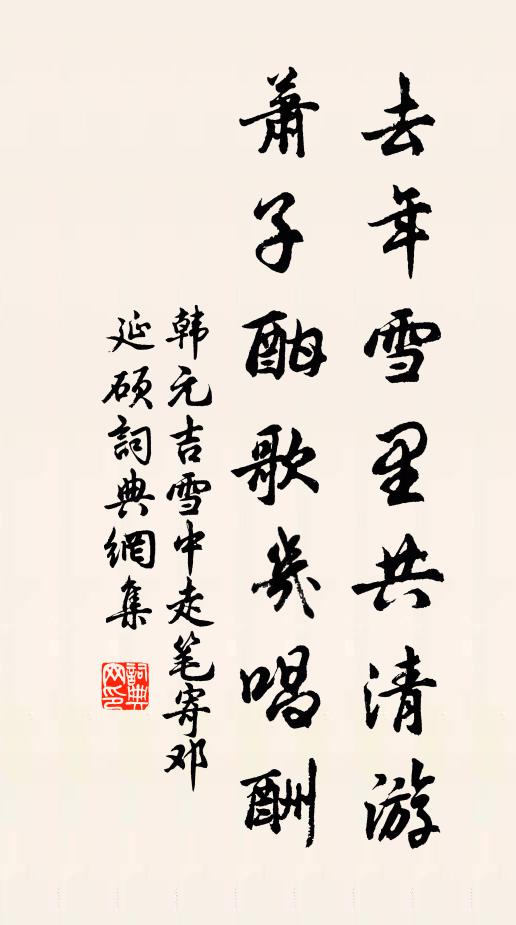 去年雪里共清游
萧子酣歌几唱酬
韩元吉雪中走笔寄邓
延硕词典網集
詞典
网印